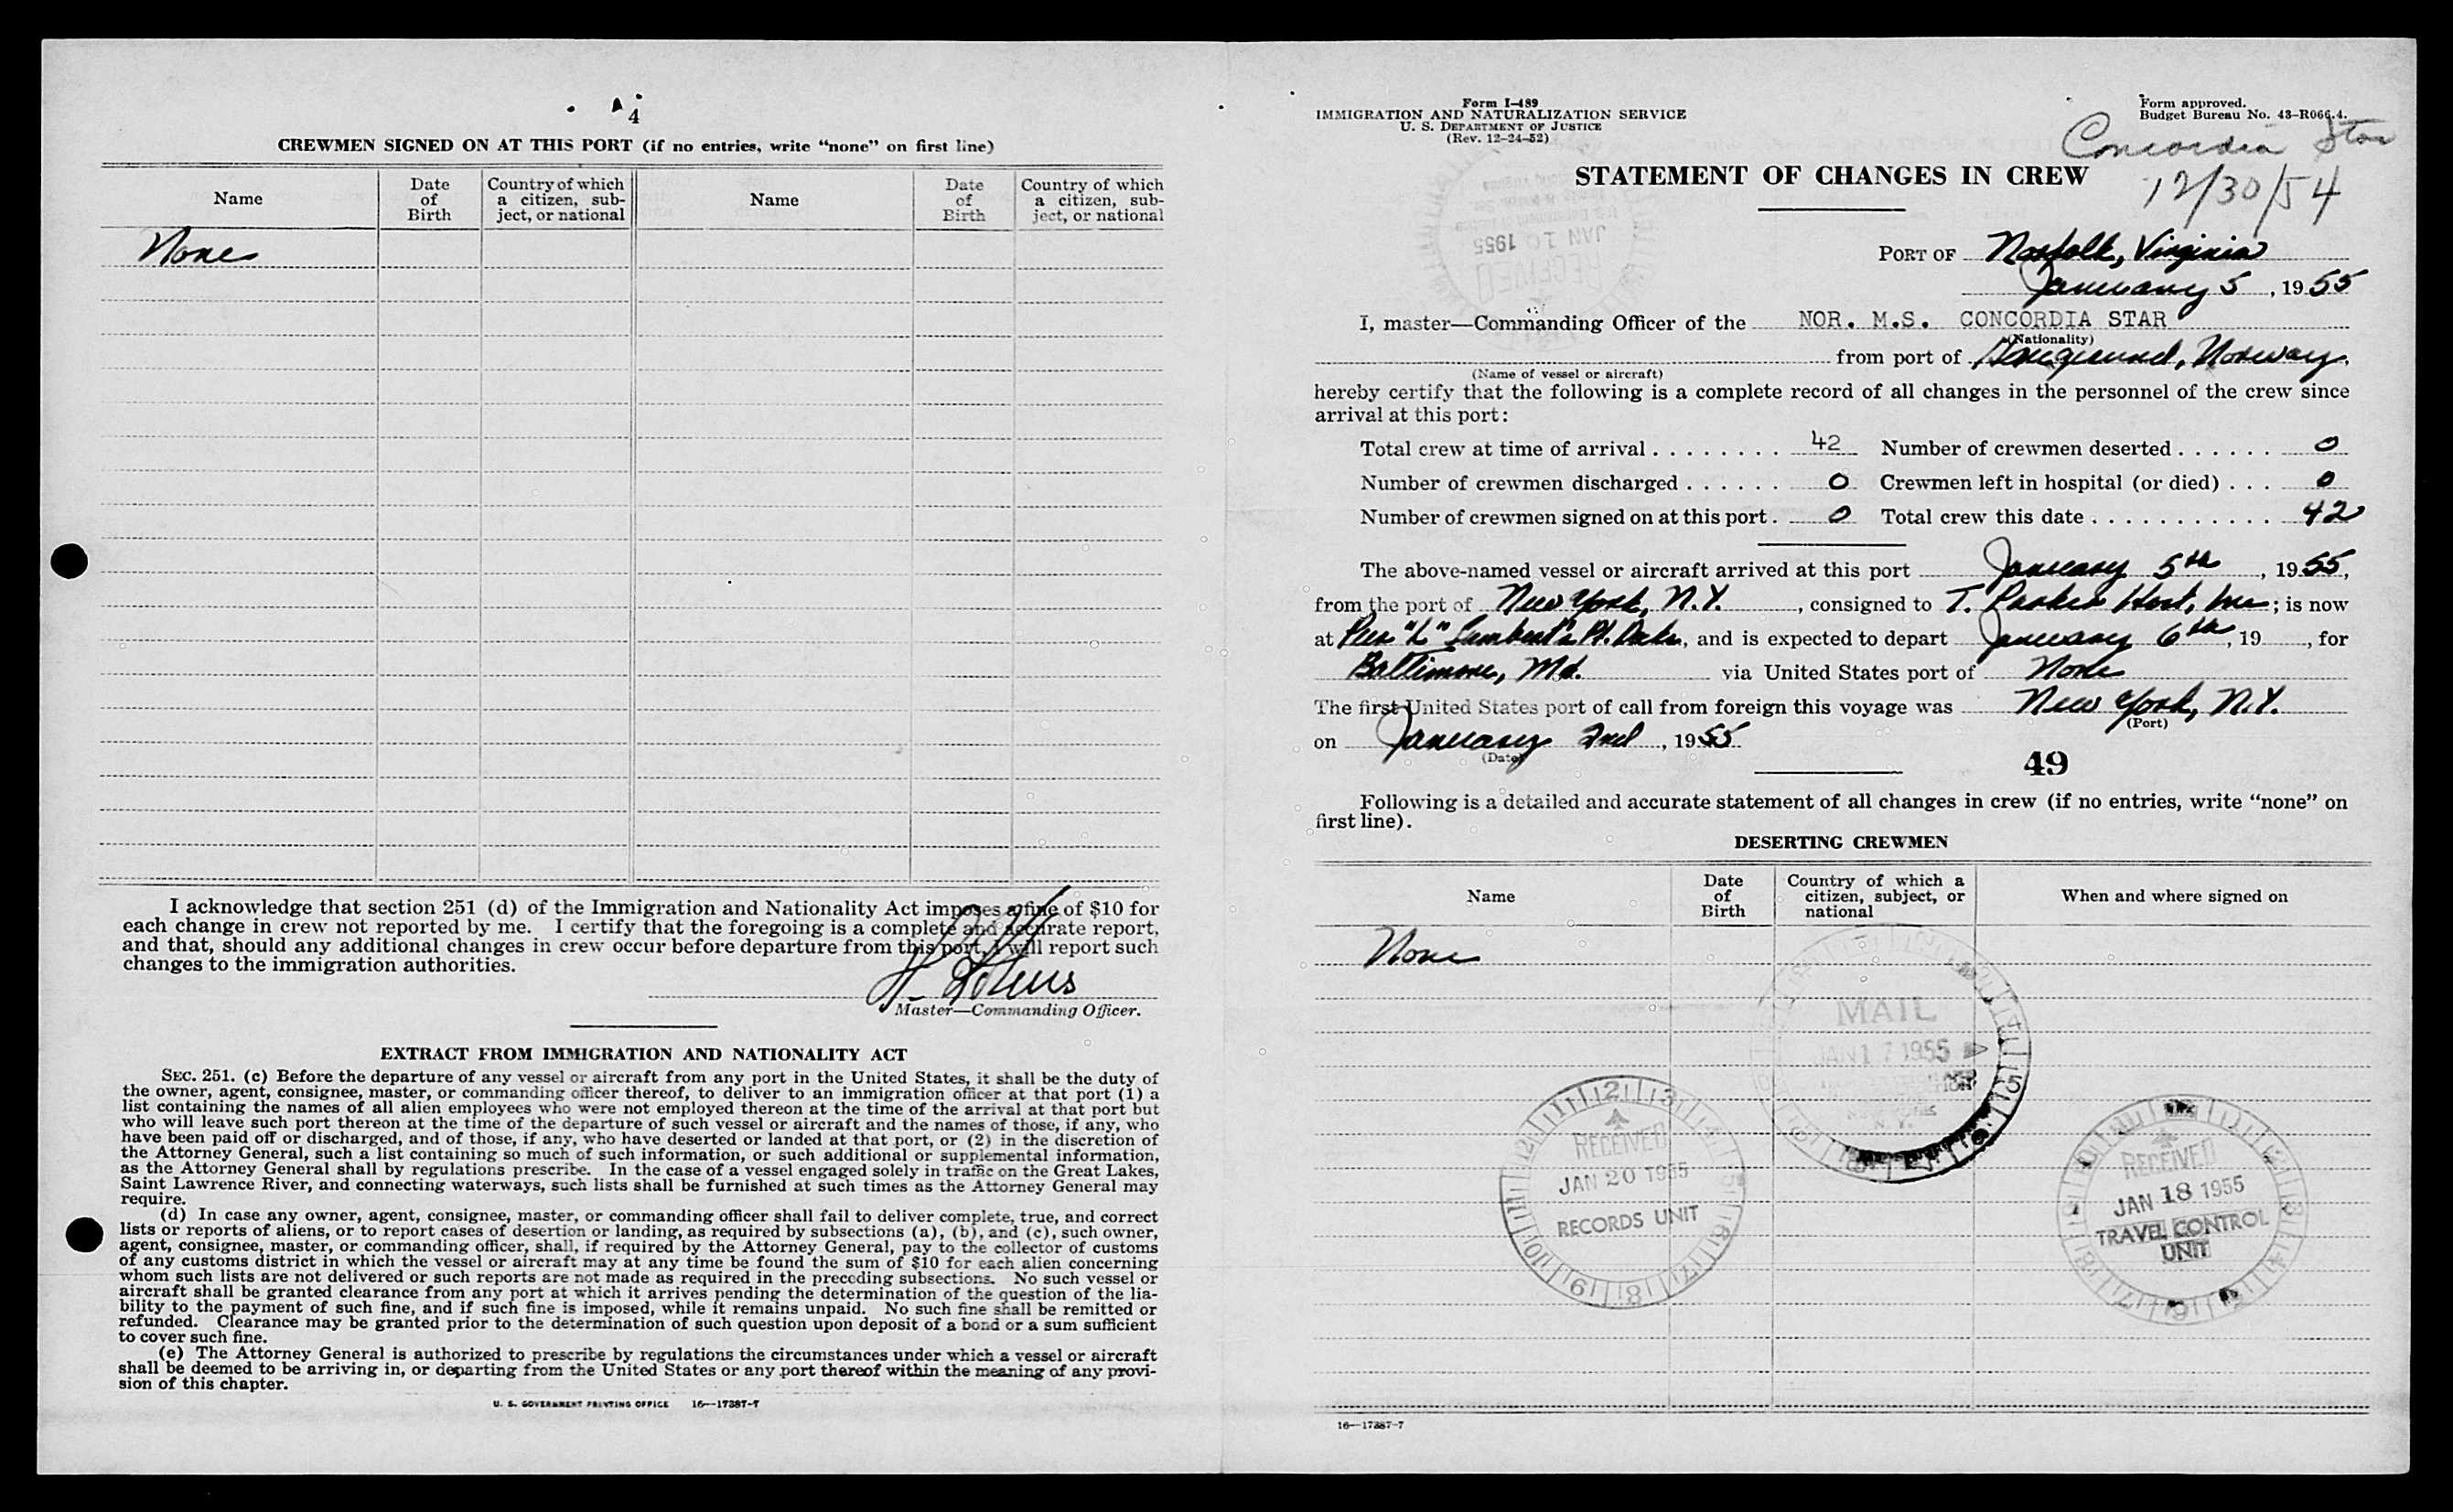 4
CREWMEN SIGNED ON AT THIS PORT (if no entries, write "none" on first line)
Name
Date of Birth
Country of which a citizen, sub-ject, or national
Name
Date of Birth
Country of which a citizen, sub-ject, or national
None
I acknowledge that section 251 (d) of the Immigration and Nationality Act imposes a fine of $10 for
each change in crew not reported by me. I certify that the foregoing is a complete and accurate report,
and that, should any additional changes in crew occur before departure from this port, I will report such
changes to the immigration authorities.
Master—Commanding Officer.
EXTRACT FROM IMMIGRATION AND NATIONALITY ACT
SEC. 251. (c) Before the departure of any vessel or aircraft from any port in the United States, it shall be the duty of
the owner, agent, consignee, master, or commanding officer thereof, to deliver to an immigration officer at that port (1) a
list containing the names of all alien employees who were not employed thereon at the time of the arrival at that port but
who will leave such port thereon at the time of the departure of such vessel or aircraft and the names of those, if any, who
have been paid off or discharged, and of those, if any, who have deserted or landed at that port, or (2) in the discretion of
the Attorney General, such a list containing so much of such information, or such additional or supplemental information,
as the Attorney General shall by regulations prescribe. In the case of a vessel engaged solely in traffic on the Great Lakes,
Saint Lawrence River, and connecting waterways, such lists shall be furnished at such times as the Attorney General may
require.
(d) In case any owner, agent, consignee, master, or commanding officer shall fail to deliver complete, true, and correct
lists or reports of aliens, or to report cases of desertion or landing, as required by subsections (a), (b), and (c), such owner,
agent, consignee, master, or commanding officer, shall, if required by the Attorney General, pay to the collector of customs
of any customs district in which the vessel or aircraft may at any time be found the sum of $10 for each alien concerning
whom such lists are not delivered or such reports are not made as required in the preceding subsections. No such vessel or
aircraft shall be granted clearance from any port at which it arrives pending the determination of the question of the lia-
bility to the payment of such fine, and if such fine is imposed, while it remains unpaid. No such fine shall be remitted or
refunded. Clearance may be granted prior to the determination of such question upon deposit of a bond or a sum sufficient
to cover such fine.
(e) The Attorney General is authorized to prescribe by regulations the circumstances under which a vessel or aircraft
shall be deemed to be arriving in, or departing from the United States or any port thereof within the meaning of any provi-
sion of this chapter.
U. S. GOVERNMENT PRINTING OFFICE 16—17387-7
Form I-489
IMMIGRATION AND NATURALIZATION SERVICE
U. S. DEPARTMENT OF JUSTICE
(Rev. 12-24-52)
Form approved.
Budget Bureau No. 43-R066.4.
Concordia Star
12/30/54
STATEMENT OF CHANGES IN CREW
RECEIVED
JAN 10 1955
PORT OF Norfolk, Virginia
January 5, 1955
I, master—Commanding Officer of the NOR. M.S. CONCORDIA STAR
(Nationality)
from port of Haugesund, Norway,
(Name of vessel or aircraft)
hereby certify that the following is a complete record of all changes in the personnel of the crew since
arrival at this port:
Total crew at time of arrival . . . . . . . . 42 Number of crewmen deserted . . . . . . 0
Number of crewmen discharged . . . . . . 0 Crewmen left in hospital (or died) . . . 0
Number of crewmen signed on at this port . 0 Total crew this date . . . . . . . . . . . 42
The above-named vessel or aircraft arrived at this port January 5th, 1955,
from the port of New York, N.Y., consigned to T. Parker Host, Inc; is now
at Pier "L" Lambert's Pt. Docks, and is expected to depart January 6th, 19 , for
Baltimore, Md. via United States port of None
The first United States port of call from foreign this voyage was New York, N.Y.
(Port)
on January 2nd, 1955
(Date)
49
Following is a detailed and accurate statement of all changes in crew (if no entries, write "none" on
first line).
DESERTING CREWMEN
Name
Date of Birth
Country of which a citizen, subject, or national
When and where signed on
None
MAIL
JAN 17 1955
RECEIVED
JAN 20 1955
RECORDS UNIT
RECEIVED
JAN 18 1955
TRAVEL CONTROL
UNIT
16—17387-7